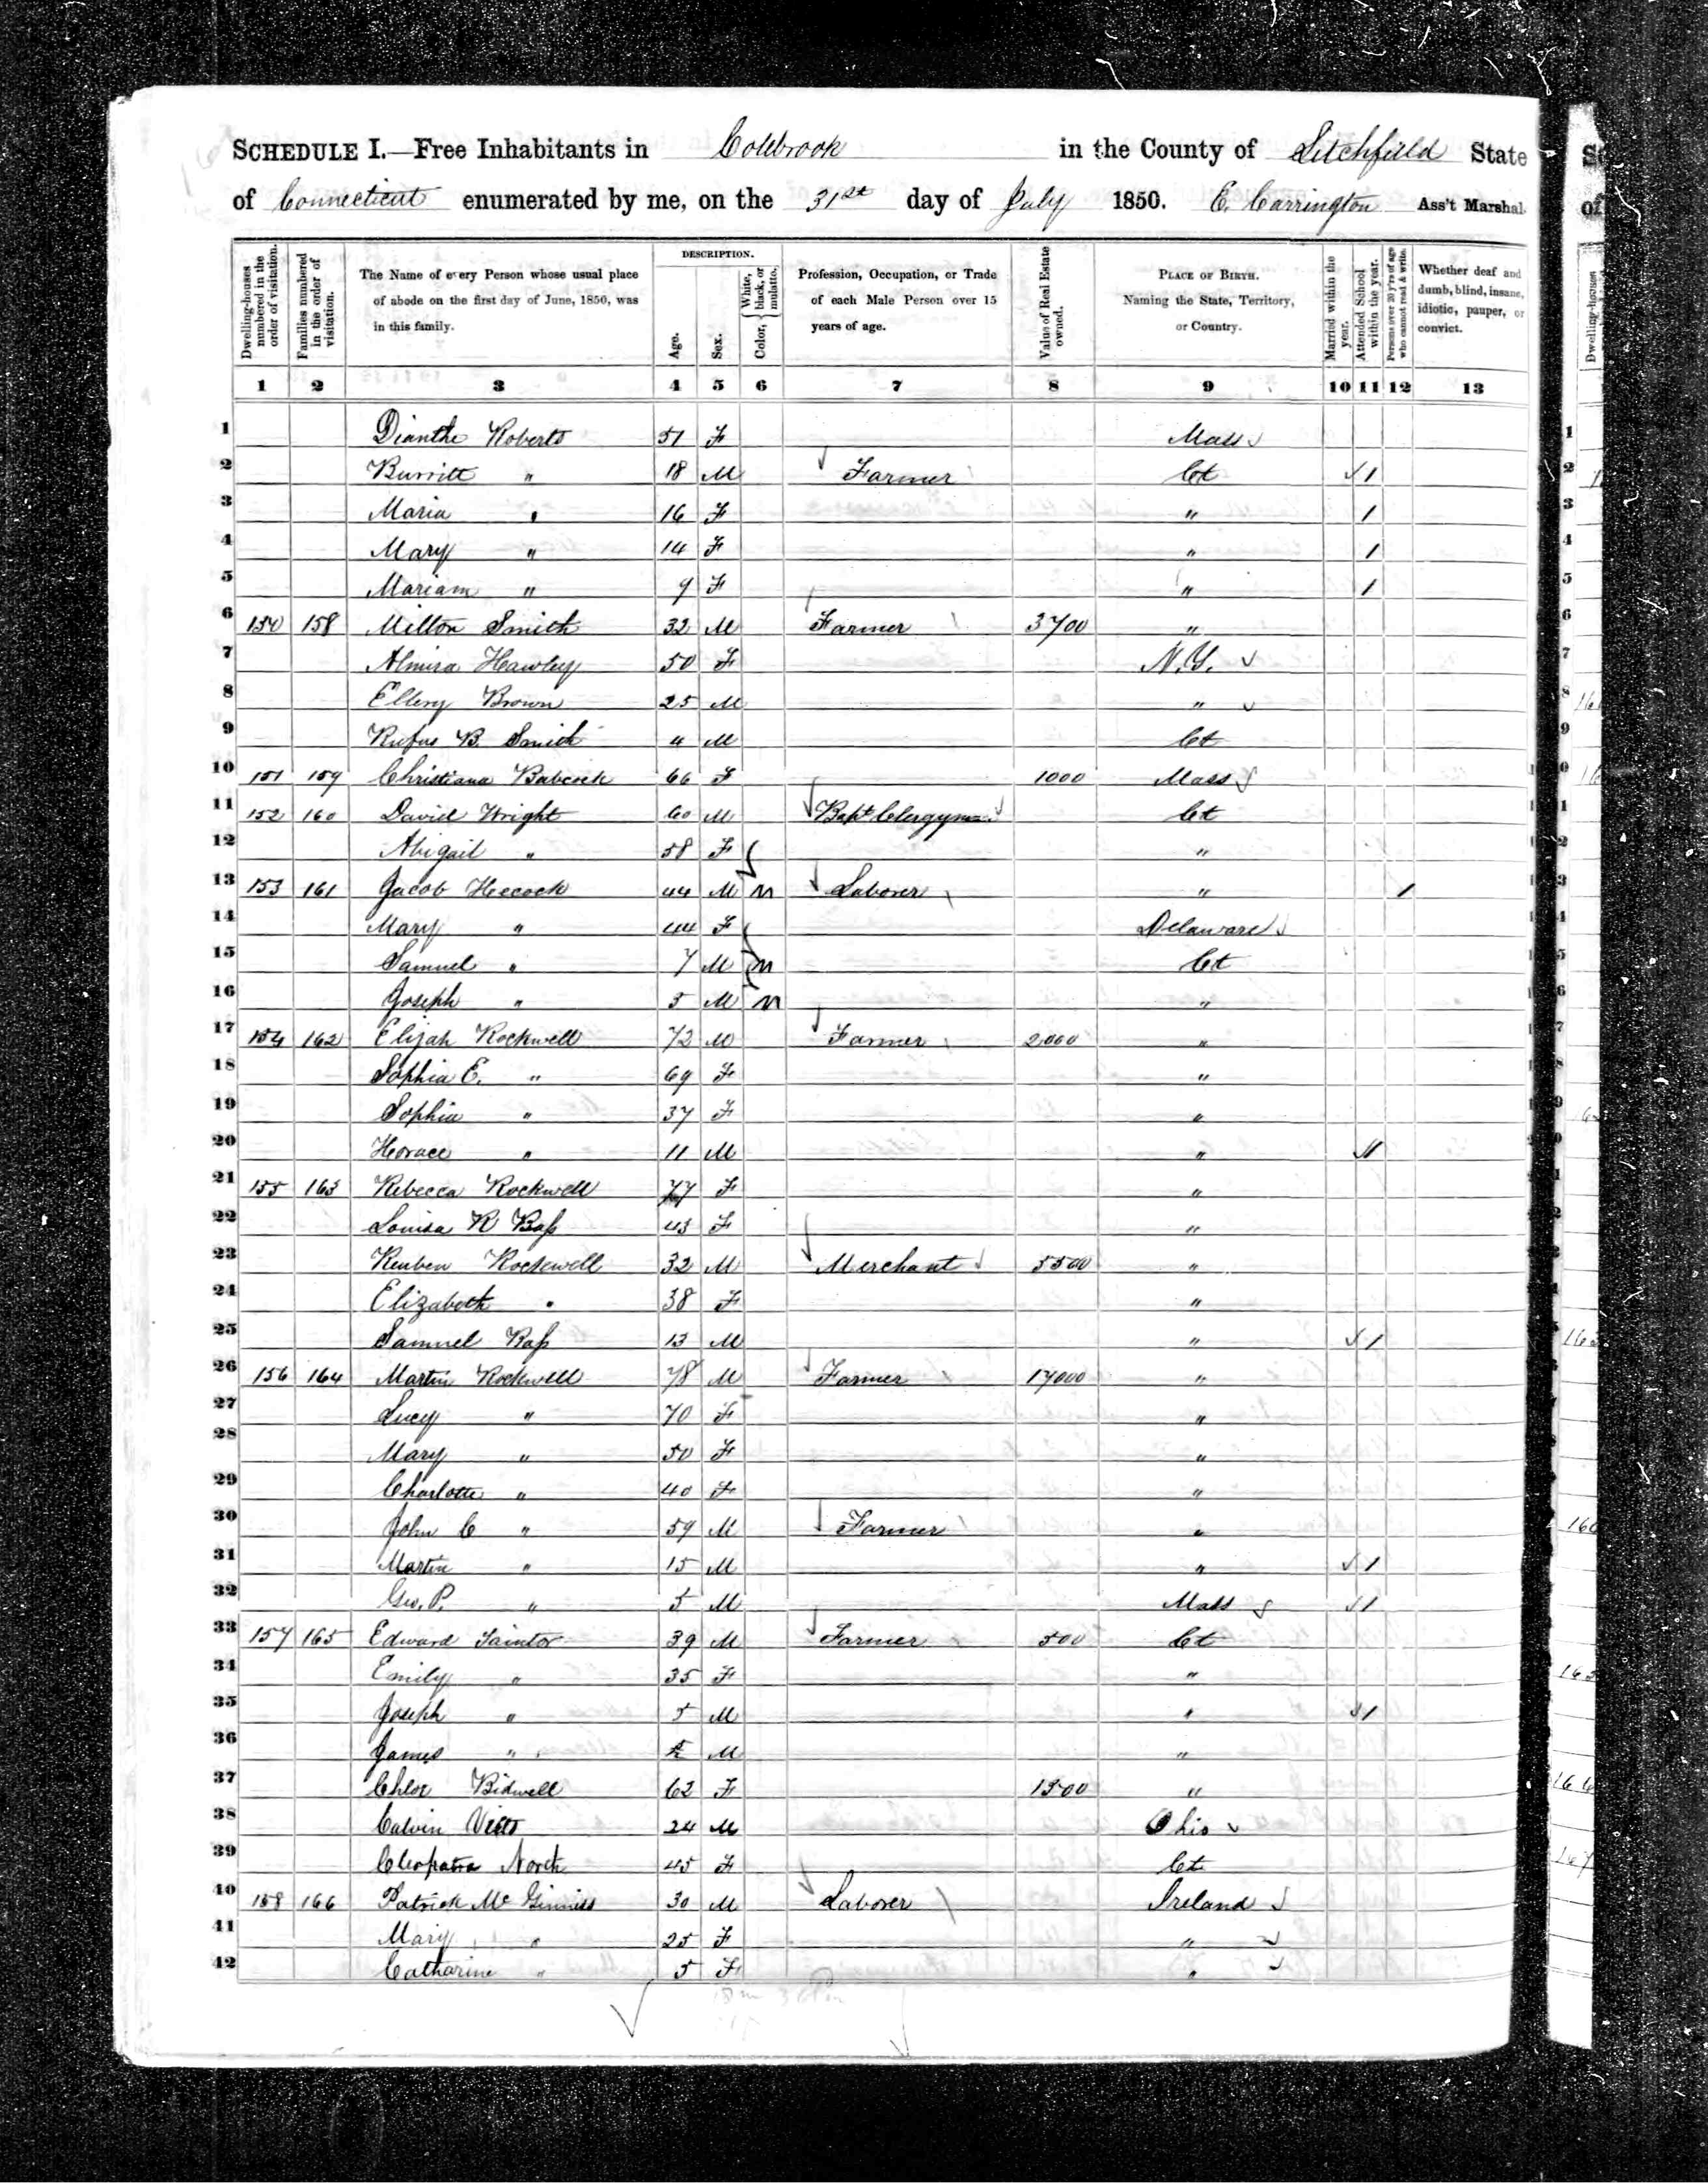 SCHEDULE I.—Free Inhabitants in Colebrook in the County of Litchfield State
of Connecticut enumerated by me, on the 31st day of July 1850. E. Carrington Ass't Marshal.
Dwelling-houses numbered in the order of visitation.
Families numbered in the order of visitation.
The Name of every Person whose usual place of abode on the first day of June, 1850, was in this family.
DESCRIPTION.
Age.
Sex.
Color, White, black, or mulatto.
Profession, Occupation, or Trade of each Male Person over 15 years of age.
Value of Real Estate owned.
PLACE OF BIRTH.
Naming the State, Territory, or Country.
Married within the year.
Attended School within the year.
Persons over 20 y'rs of age who cannot read & write.
Whether deaf and dumb, blind, insane, idiotic, pauper, or convict.
1 2 3 4 5 6 7 8 9 10 11 12 13
1 Dianthe Roberts 51 F Mass
2 Burritt " 18 M Farmer Ct 1
3 Maria " 16 F " 1
4 Mary " 14 F " 1
5 Mariam " 9 F " 1
6 150 158 Milton Smith 32 M Farmer 3700 "
7 Almira Hawley 50 F N.Y.
8 Ellery Brown 25 M "
9 Rufus B. Smith 4 M Ct
10 151 159 Christiana Babcock 66 F 1000 Mass
11 152 160 David Wright 60 M Bapt Clergyman Ct
12 Abigail " 58 F "
13 153 161 Jacob Hecock 44 M M Laborer " 1
14 Mary " 44 F Delaware
15 Samuel " 7 M M Ct
16 Joseph " 5 M M "
17 154 162 Elijah Rockwell 72 M Farmer 2000 "
18 Sophia E. " 69 F "
19 Sophia " 37 F "
20 Horace " 11 M " 1
21 155 163 Rebecca Rockwell 77 F "
22 Louisa R Bass 43 F "
23 Reuben Rockwell 32 M Merchant 5500 "
24 Elizabeth " 38 F "
25 Samuel Bass 13 M " 1
26 156 164 Martin Rockwell 78 M Farmer 17000 "
27 Lucy " 70 F "
28 Mary " 50 F "
29 Charlotte " 40 F "
30 John C " 59 M Farmer "
31 Martin " 15 M " 1
32 Geo. P. " 5 M Mass 1
33 157 165 Edward Taintor 39 M Farmer 500 Ct
34 Emily " 35 F "
35 Joseph " 5 M " 1
36 James " M "
37 Chloe Bidwell 62 F 1300 "
38 Calvin 24 M Ohio
39 Cleopatra North 45 F Ct
40 158 166 Patrick Mc Ginniss 30 M Laborer Ireland
41 Mary " 25 F "
42 Catharine " 5 F "